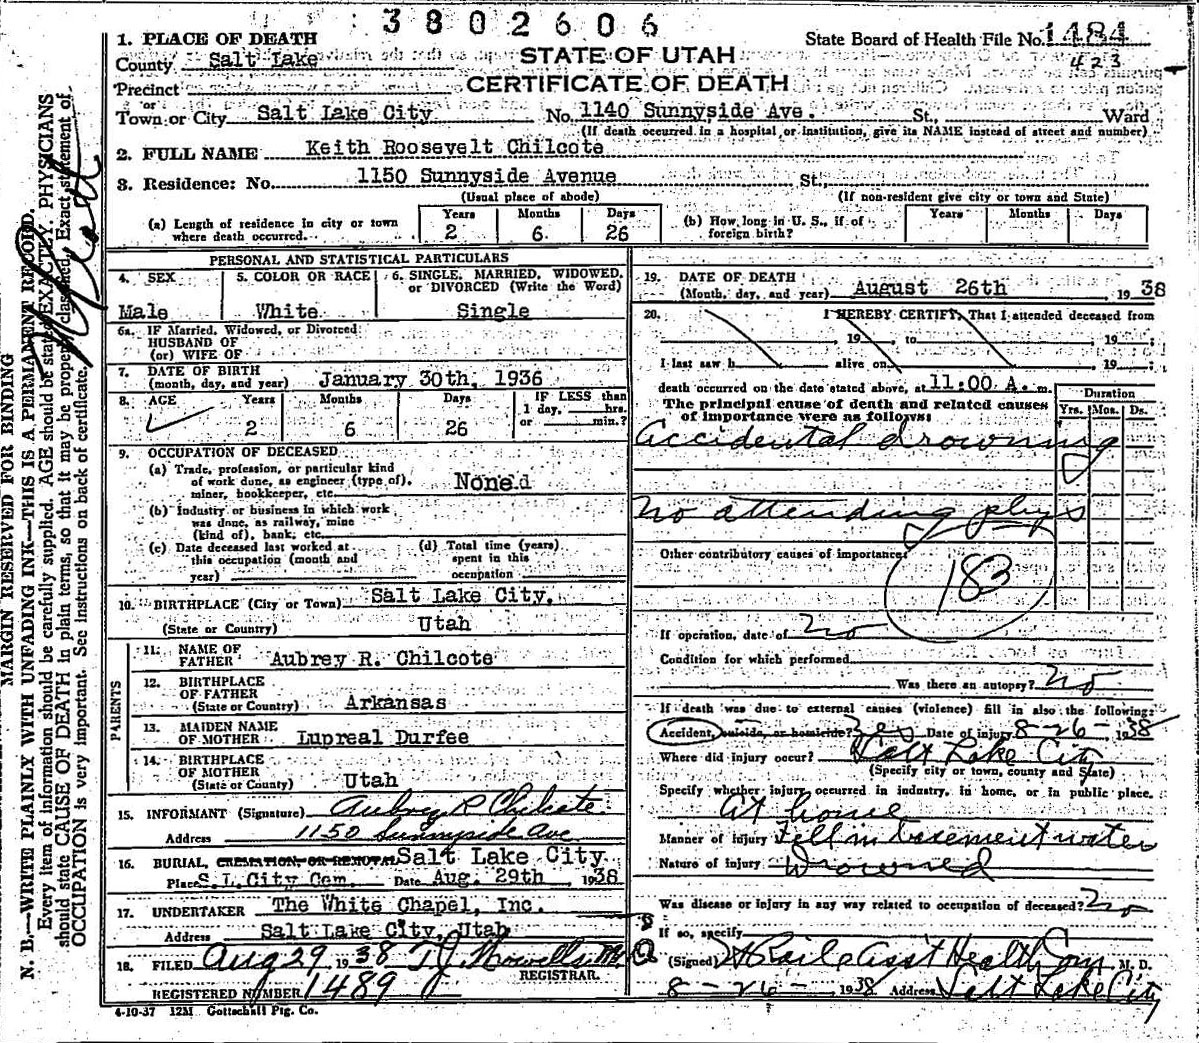 3802606
1. PLACE OF DEATH
State Board of Health File No. 1484
County Salt Lake
STATE OF UTAH
423
Precinct
CERTIFICATE OF DEATH
or
Town or City Salt Lake City No. 1140 Sunnyside Ave. St., Ward
(If death occurred in a hospital or institution, give its NAME instead of street and number)
2. FULL NAME Keith Roosevelt Chilcote
3. Residence: No. 1150 Sunnyside Avenue St.
(Usual place of abode) (If non-resident give city or town and State)
(a) Length of residence in city or town where death occurred. Years 2 Months 6 Days 26
(b) How long in U. S., if of foreign birth? Years Months Days
PERSONAL AND STATISTICAL PARTICULARS
4. SEX Male
5. COLOR OR RACE White
6. SINGLE, MARRIED, WIDOWED, or DIVORCED (Write the Word) Single
6a. IF Married, Widowed, or Divorced
HUSBAND OF
(or) WIFE OF
7. DATE OF BIRTH
(month, day, and year) January 30th, 1936
8. AGE Years 2 Months 6 Days 26
IF LESS than
1 day, hrs.
or min.?
9. OCCUPATION OF DECEASED
(a) Trade, profession, or particular kind
of work done, as engineer (type of),
miner, bookkeeper, etc. None
(b) Industry or business in which work
was done, as railway, mine
(kind of), bank, etc.
(c) Date deceased last worked at
this occupation (month and
year)
(d) Total time (years)
spent in this
occupation
10. BIRTHPLACE (City or Town) Salt Lake City,
(State or Country) Utah
PARENTS
11. NAME OF
FATHER Aubrey R. Chilcote
12. BIRTHPLACE
OF FATHER
(State or Country) Arkansas
13. MAIDEN NAME
OF MOTHER Lupreal Durfee
14. BIRTHPLACE
OF MOTHER
(State or Country) Utah
15. INFORMANT (Signature) Aubrey R Chilcote
Address 1150 Sunnyside Ave
16. BURIAL, CREMATION, OR REMOVAL Salt Lake City
Place S.L.City Cem. Date Aug. 29th 1938
17. UNDERTAKER The White Chapel, Inc.
Address Salt Lake City, Utah
18. FILED Aug 29 1938 T.J. Howells M.D.
REGISTRAR.
REGISTERED NUMBER 1489
4-10-37 12M Gottschall Ptg. Co.
19. DATE OF DEATH
(Month, day, and year) August 26th, 1938
20. I HEREBY CERTIFY, That I attended deceased from
19 to 19
I last saw h alive on 19
death occurred on the date stated above, at 11:00 A. m.
The principal cause of death and related causes
of importance were as follows:
Duration
Yrs. Mos. Ds.
Accidental drowning
No attending phys
Other contributory causes of importance:
183
If operation, date of No
Condition for which performed
Was there an autopsy? No
If death was due to external causes (violence) fill in also the following:
Accident, suicide, or homicide? Yes Date of injury 8-26-1938
Where did injury occur? Salt Lake City
(Specify city or town, county and State)
Specify whether injury occurred in industry, in home, or in public place.
At home
Manner of injury Fell in basement water
Nature of injury Drowned
Was disease or injury in any way related to occupation of deceased? No
If so, specify
(Signed) Asst Health Com M. D.
8-26-1938 Address Salt Lake City
MARGIN RESERVED FOR BINDING
N. B.—WRITE PLAINLY WITH UNFADING INK—THIS IS A PERMANENT RECORD.
Every item of information should be carefully supplied. AGE should be stated EXACTLY. PHYSICIANS
should state CAUSE OF DEATH in plain terms, so that it may be properly classified. Exact statement of
OCCUPATION is very important. See instructions on back of certificate.